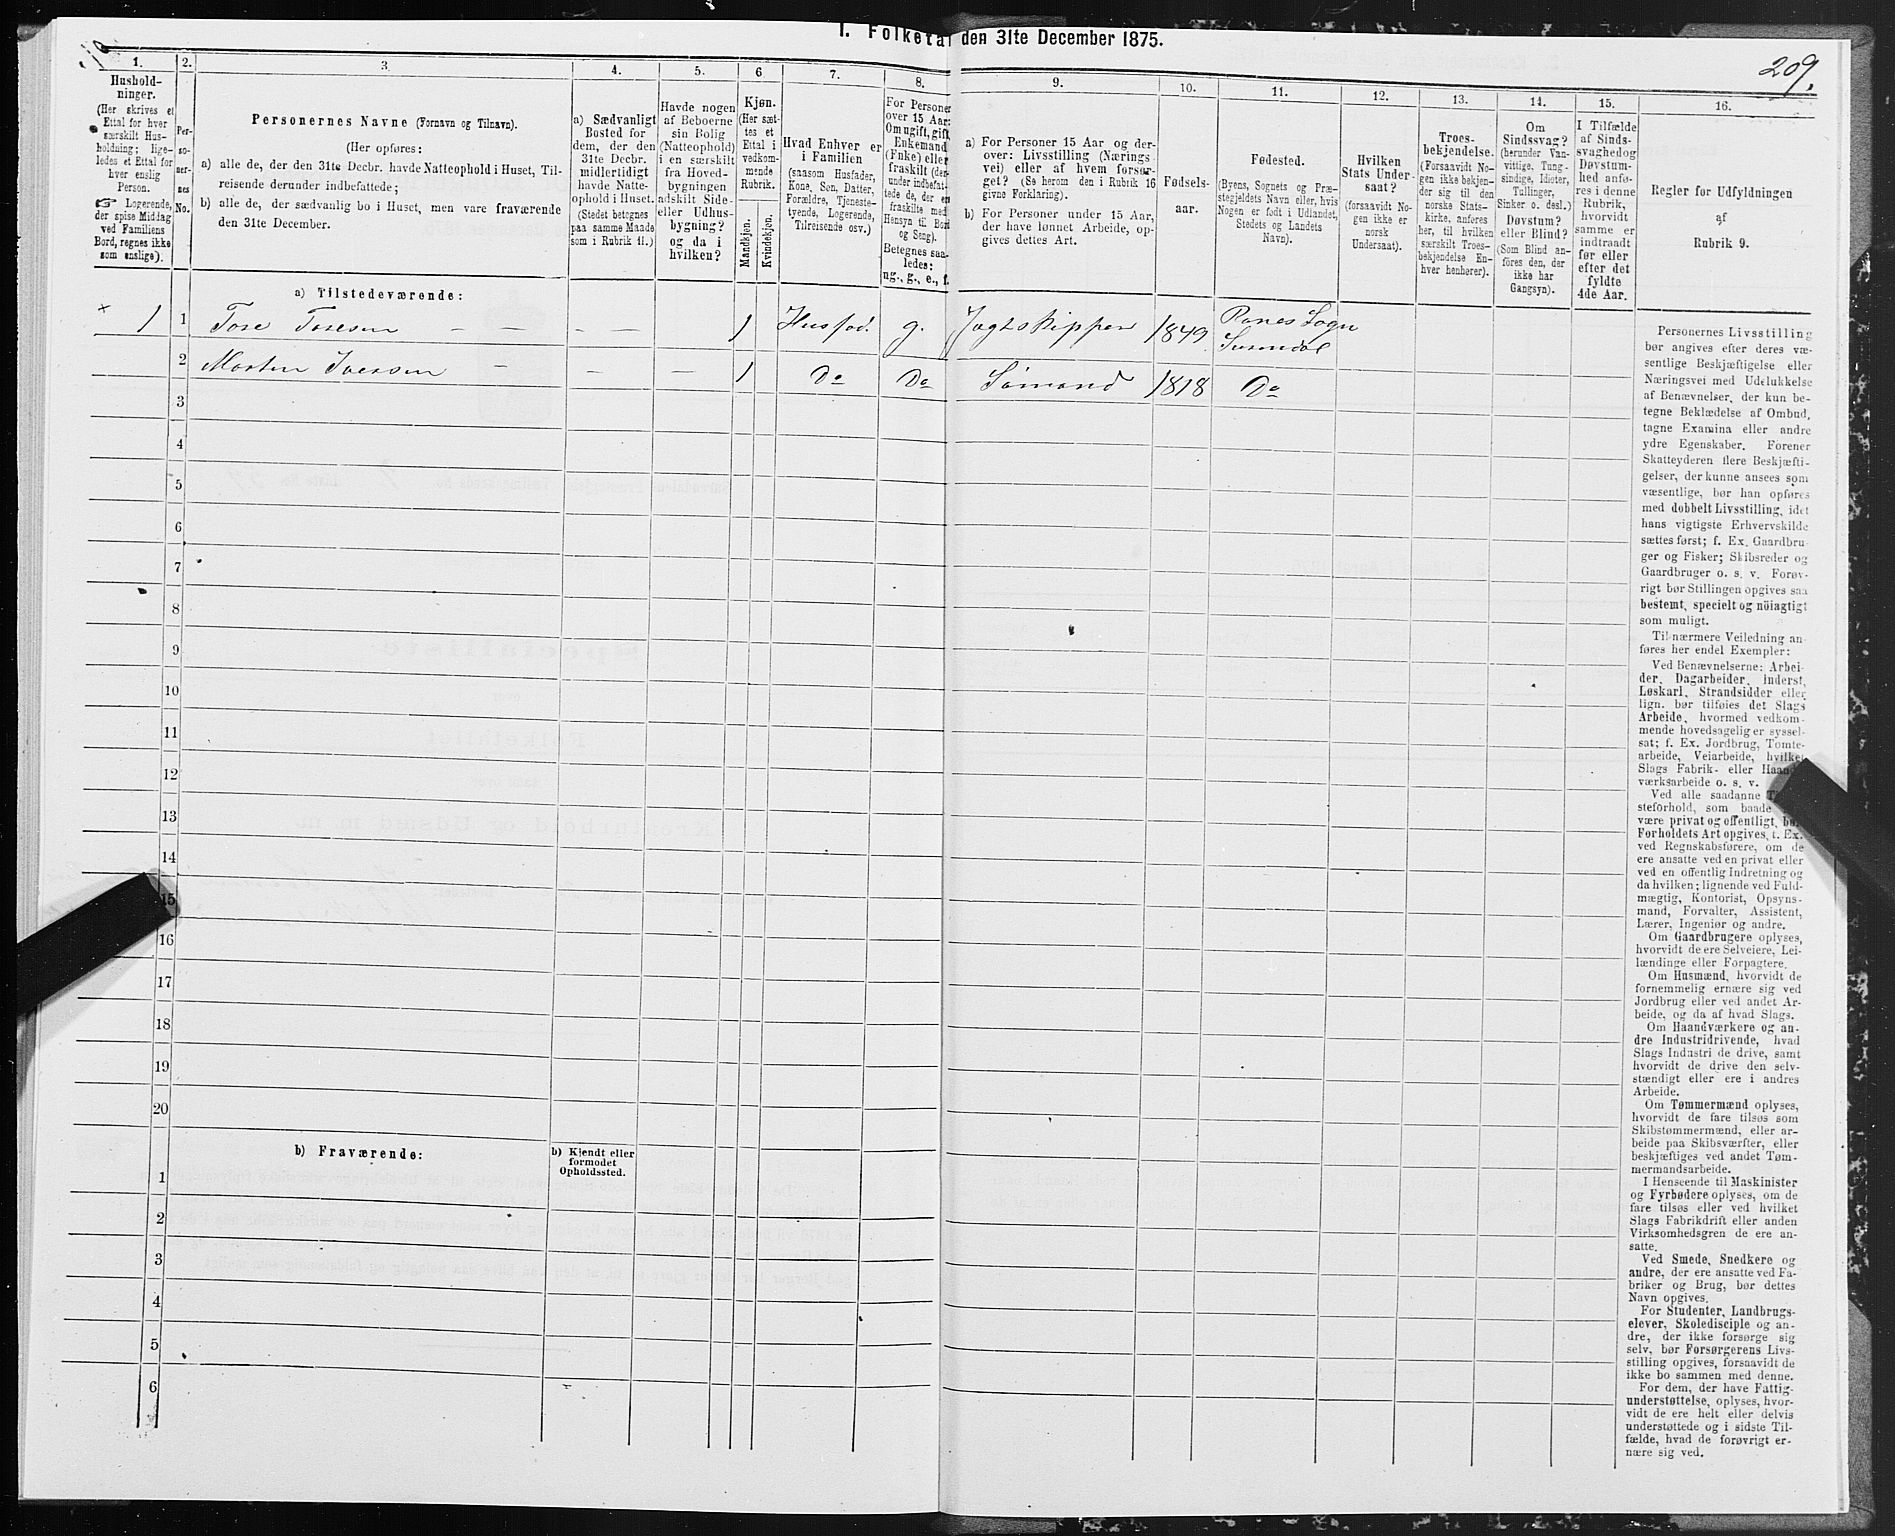 I. Folketal den 31te December 1875.
209.
1.
Hushold-
ninger.
(Her skrives et
Ettal for hver
særskilt Hus-
holdning; lige-
ledes et Ettal for
hver enslig
Person.
☞ Logerende,
der spise Middag
ved Familiens
Bord, regnes ikke
som enslige).
2.
Per-
so-
ner-
nes
No.
3.
Personernes Navne (Fornavn og Tilnavn).
(Her opføres:
a) alle de, der den 31te Decbr. havde Natteophold i Huset, Til-
reisende derunder indbefattede;
b) alle de, der sædvanlig bo i Huset, men vare fraværende
den 31te December.
4.
a) Sædvanligt
Bosted for
dem, der den
31te Decbr.
midlertidigt
havde Natte-
ophold i Huset.
(Stedet betegnes
paa samme Maade
som i Rubrik 11.)
5.
Havde nogen
af Beboerne
sin Bolig
(Natteophold)
i en særskilt
fra Hoved-
bygningen
adskilt Side-
eller Udhus-
bygning?
og da i
hvilken?
6
Kjøn.
(Her sæt-
tes et
Ettal i
vedkom-
mende
Rubrik.
Mandkjøn.
Kvindekjøn.
7.
Hvad Enhver er
i Familien
(saasom Husfader,
Kone, Søn, Datter,
Forældre, Tjeneste-
tyende, Logerende,
Tilreisende osv.)
8.
For Personer
over 15 Aar:
Om ugift, gift,
Enkemand
(Enke) eller
fraskilt (der-
under indbefat-
tede de, der ere
fraskilte med
Hensyn til Bord
og Seng).
Betegnes saa-
ledes:
ug., g., e., f.
9.
a) For Personer 15 Aar og der-
over: Livsstilling (Nærings-
vei) eller af hvem forsør-
get? (Se herom den i Rubrik 16
givne Forklaring).
b) For Personer under 15 Aar,
der have lønnet Arbeide, op-
gives dettes Art.
10.
Fødsels-
aar.
11.
Fødested.
(Byens, Sognets og Præ-
stegjeldets Navn eller, hvis
Nogen er født i Udlandet,
Stedets og Landets
Navn).
12.
Hvilken
Stats Under-
saat?
(forsaavidt No-
gen ikke er
norsk
Undersaat).
13.
Troes-
bekjendelse.
(Forsaavidt No-
gen ikke bekjen-
der sig til den
norske Stats-
kirke, anføres
her, til hvilken
særskilt Troes-
bekjendelse En-
hver henhører).
14.
Om
Sindssvag?
(herunder Van-
vittige, Tung-
sindige, Idioter,
Tullinger,
Sinker o. desl.)
Døvstum?
eller Blind?
(Som Blind an-
føres den, der
ikke har
Gangsyn).
15.
I Tilfælde
af Sinds-
svaghed og
Døvstum-
hed anfø-
res i denne
Rubrik,
hvorvidt
samme er
indtraadt
før eller
efter det
fyldte
4de Aar.
16.
Regler for Udfyldningen
af
Rubrik 9.
a) Tilstedeværende:
× 1 1 Tore Toresen — — — — 1 Husfad. g. Jagtskipper 1849 Ranes Sogn
Surendal
2 Morten Iversen — — — 1 Do Do Sømand 1818 Do
3
4
5
6
7
8
9
10
11
12
13
14
15
16
17
18
19
20
b) Fraværende:
b) Kjendt eller
formodet
Opholdssted.
1
2
3
4
5
6
Personernes Livsstilling
bør angives efter deres væ-
sentlige Beskjæftigelse eller
Næringsvei med Udelukkelse
af Benævnelser, der kun be-
tegne Beklædelse af Ombud,
tagne Examina eller andre
ydre Egenskaber. Forener
Skatteyderen flere Beskjæfti-
gelser, der kunne ansees som
væsentlige, bør han opføres
med dobbelt Livsstilling, idet
hans vigtigste Erhvervskilde
sættes først; f. Ex. Gaardbru-
ger og Fisker; Skibsreder og
Gaardbruger o. s. v. Forøv-
rigt bør Stillingen opgives saa
bestemt, specielt og nöiagtigt
som muligt.
Til nærmere Veiledning an-
føres her endel Exempler:
Ved Benævnelserne: Arbei-
der, Dagarbeider, Inderst,
Løskarl, Strandsidder eller
lign. bør tilføies det Slags
Arbeide, hvormed vedkom-
mende hovedsagelig er syssel-
sat; f. Ex. Jordbrug, Tomte-
arbeide, Veiarbeide, hvilket
Slags Fabrik- eller Haand-
værksarbeide o. s. v.
Ved alle saadanne
steforhold, som baade
være privat og offentligt, bør
Forholdets Art opgives, f. Ex.
ved Regnskabsførere, om de
ere ansatte ved en privat eller
ved en offentlig Indretning og
da hvilken; lignende ved Fuld-
mægtig, Kontorist, Opsyns-
mand, Forvalter, Assistent,
Lærer, Ingeniør og andre.
Om Gaardbrugere oplyses,
hvorvidt de ere Selveiere, Lei-
lændinge eller Forpagtere.
Om Husmænd, hvorvidt de
fornemmelig ernære sig ved
Jordbrug eller ved andet Ar-
beide, og da af hvad Slags.
Om Haandværkere og an-
dre Industridrivende, hvad
Slags Industri de drive, samt
hvorvidt de drive den selv-
stændigt eller ere i andres
Arbeide.
Om Tømmermænd oplyses,
hvorvidt de fare tilsøs som
Skibstømmermænd, eller ar-
beide paa Skibsværfter, eller
beskjæftiges ved andet Tøm-
mermandsarbeide.
I Henseende til Maskinister
og Fyrbødere oplyses, om de
fare tilsøs eller ved hvilket
Slags Fabrikdrift eller anden
Virksomhedsgren de ere an-
satte.
Ved Smede, Snedkere og
andre, der ere ansatte ved Fa-
briker og Brug, bør dettes
Navn opgives.
For Studenter, Landbrugs-
elever, Skoledisciple og an-
dre, der ikke forsørge sig
selv, bør Forsørgerens Livs-
stilling opgives, forsaavidt de
ikke bo sammen med denne.
For dem, der have Fattig-
understøttelse, oplyses, hvor-
vidt de ere helt eller delvis
understøttede og i sidste Til-
fælde, hvad de forøvrigt er-
nære sig ved.